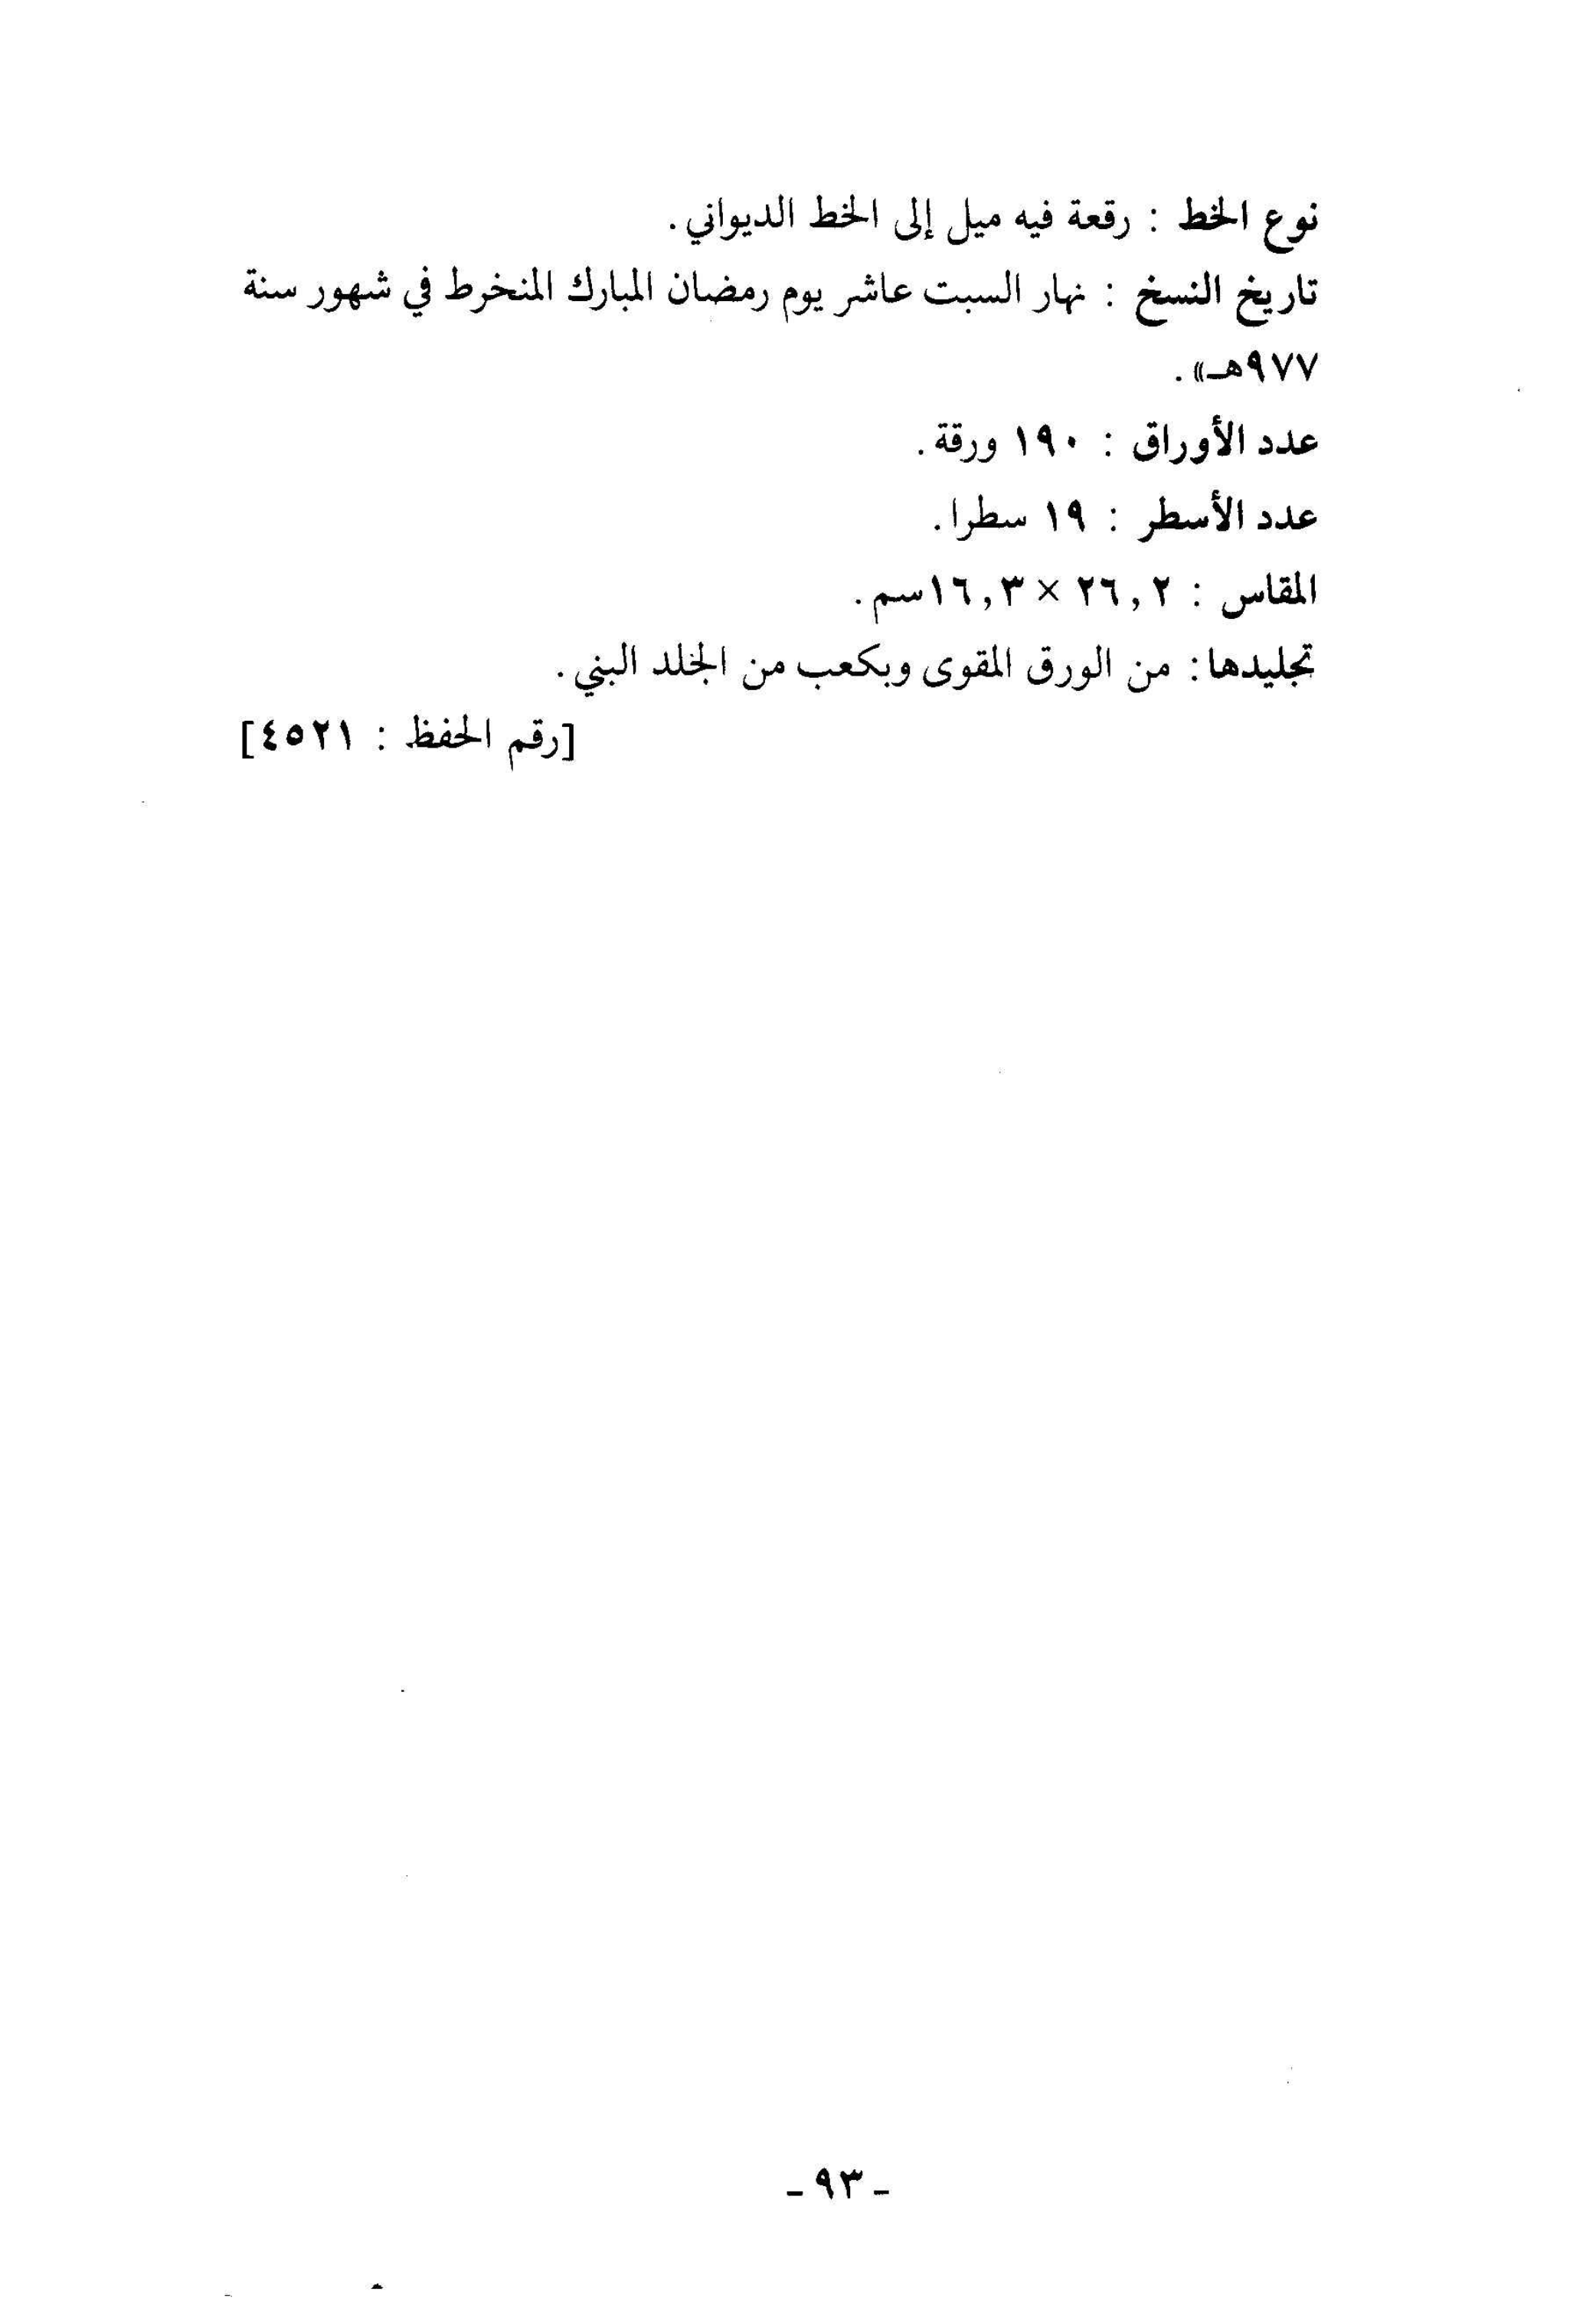 نوع الخط : رقعة فيه ميل إلى الخط الديواني.
تاريخ النسخ : نهار السبت عاشر يوم رمضان المبارك المنخرط في شهور سنة
٩٧٧هـ».
عدد الأوراق : ١٩٠ ورقة.
عدد الأسطر : ١٩ سطرا.
المقاس : ٢٦,٢ × ١٦,٣سم.
تجليدها: من الورق المقوى وبكعب من الخلد البني.
[رقم الحفظ : ٤٥٢١]
- ٩٣ -